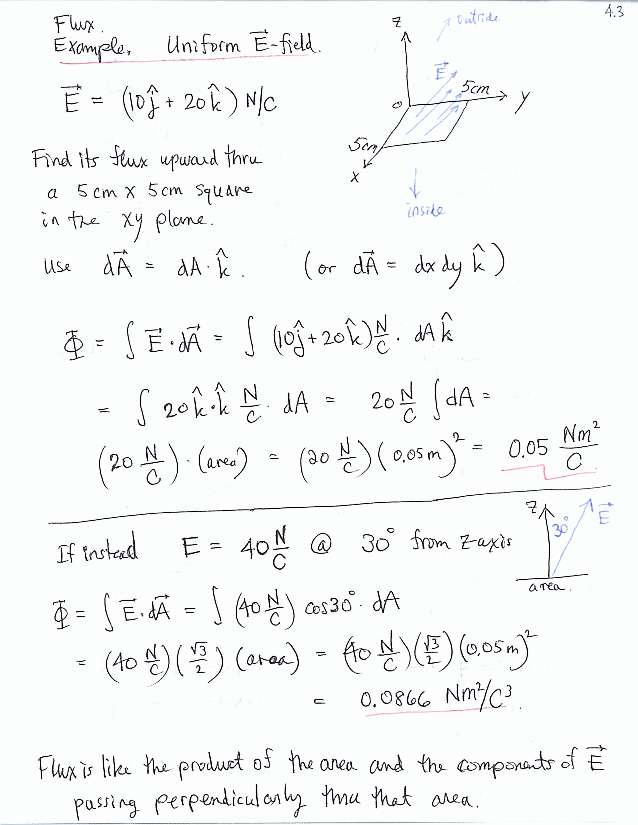 4.3
Flux.
Example. Uniform E⃗-field.
E⃗ = (10ĵ + 20k̂) N/C
z
outside
E⃗
5cm
y
o
5cm
x
inside
Find its flux upward thru
a 5cm x 5cm square
in the xy plane.
Use dA⃗ = dA·k̂. (or dA⃗ = dx dy k̂)
Φ = ∫ E⃗·dA⃗ = ∫ (10ĵ+20k̂) N/C · dA k̂
= ∫ 20k̂·k̂ N/C · dA = 20 N/C ∫ dA =
(20 N/C)·(area) = (20 N/C)(0.05m)² = 0.05 Nm²/C
If instead E = 40 N/C @ 30° from z-axis
z
30°
E⃗
area.
Φ = ∫ E⃗·dA⃗ = ∫ (40 N/C) cos30° · dA
= (40 N/C)(√3/2)(area) = (40 N/C)(√3/2)(0.05m)²
= 0.0866 Nm²/C³.
Flux is like the product of the area and the components of E⃗
passing perpendicularly thru that area.